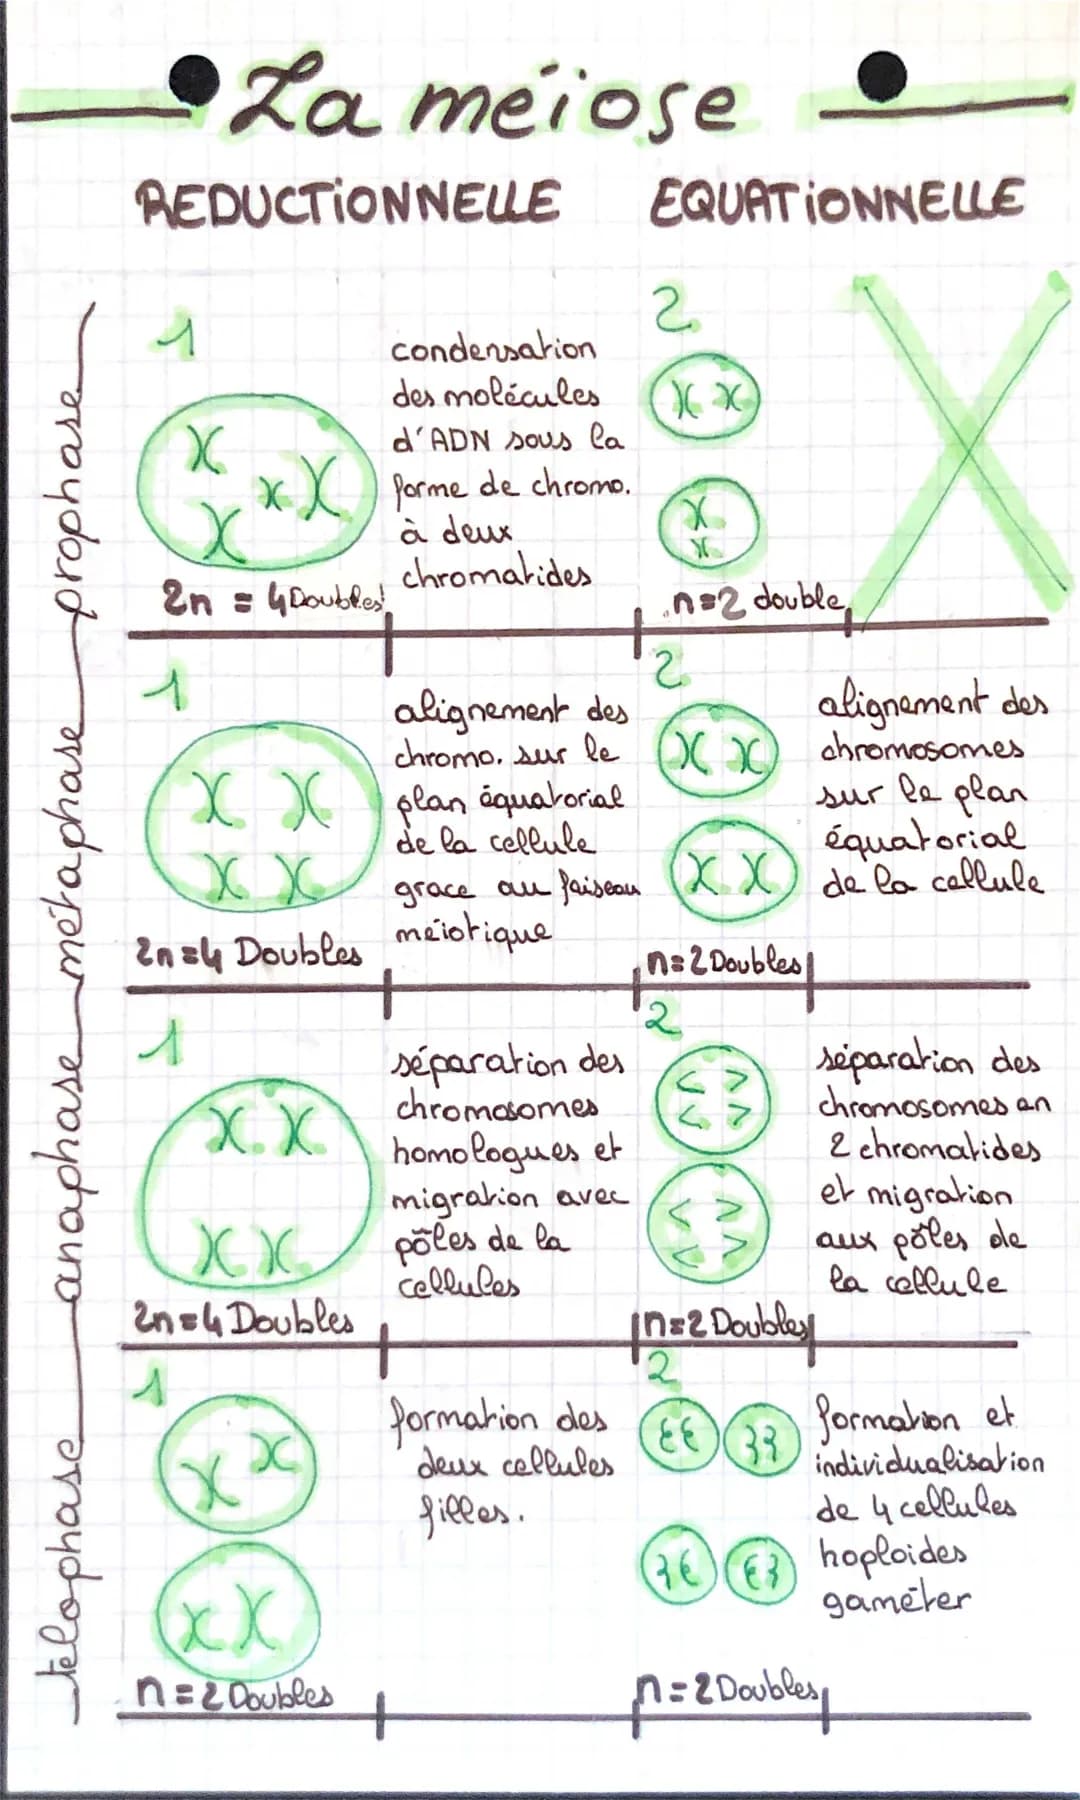 La méiose
REDUCTiONNELLE
EQUATiONNELLE
prophase
1
condensation
des molécules
d'ADN sous la
forme de chromo.
à deux
chromatides
2n = 4 Doubles
2
n=2 double
métaphase
1
alignement des
chromo. sur le
plan équatorial
de la cellule
grace au faiseau
méiotique
2n=4 Doubles
2
alignement des
chromosomes
sur le plan
équatorial
de la cellule
n=2 Doubles
anaphase
1
séparation des
chromosomes
homologues et
migration avec
pôles de la
cellules
2n=4 Doubles
2
séparation des
chromosomes en
2 chromatides
et migration
aux pôles de
la cellule
n=2 Doubles
telophase
1
formation des
deux cellules
filles.
n=2 Doubles
2
formation et
individualisation
de 4 cellules
hoploides
gaméter
n=2 Doubles